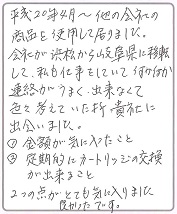 平成20年4月～他の会社の
商品を使用して居りました。
会社が浜松から岐阜県に移転
して、私も仕事をしていて
連絡がうまく出来なくて
色々考えていた折、貴社に
出会いました。
① 金額が気に入ったこと
② 定期的にカートリッジの交換
が出来ること
2つの点がとても気に入りました
良かったです。